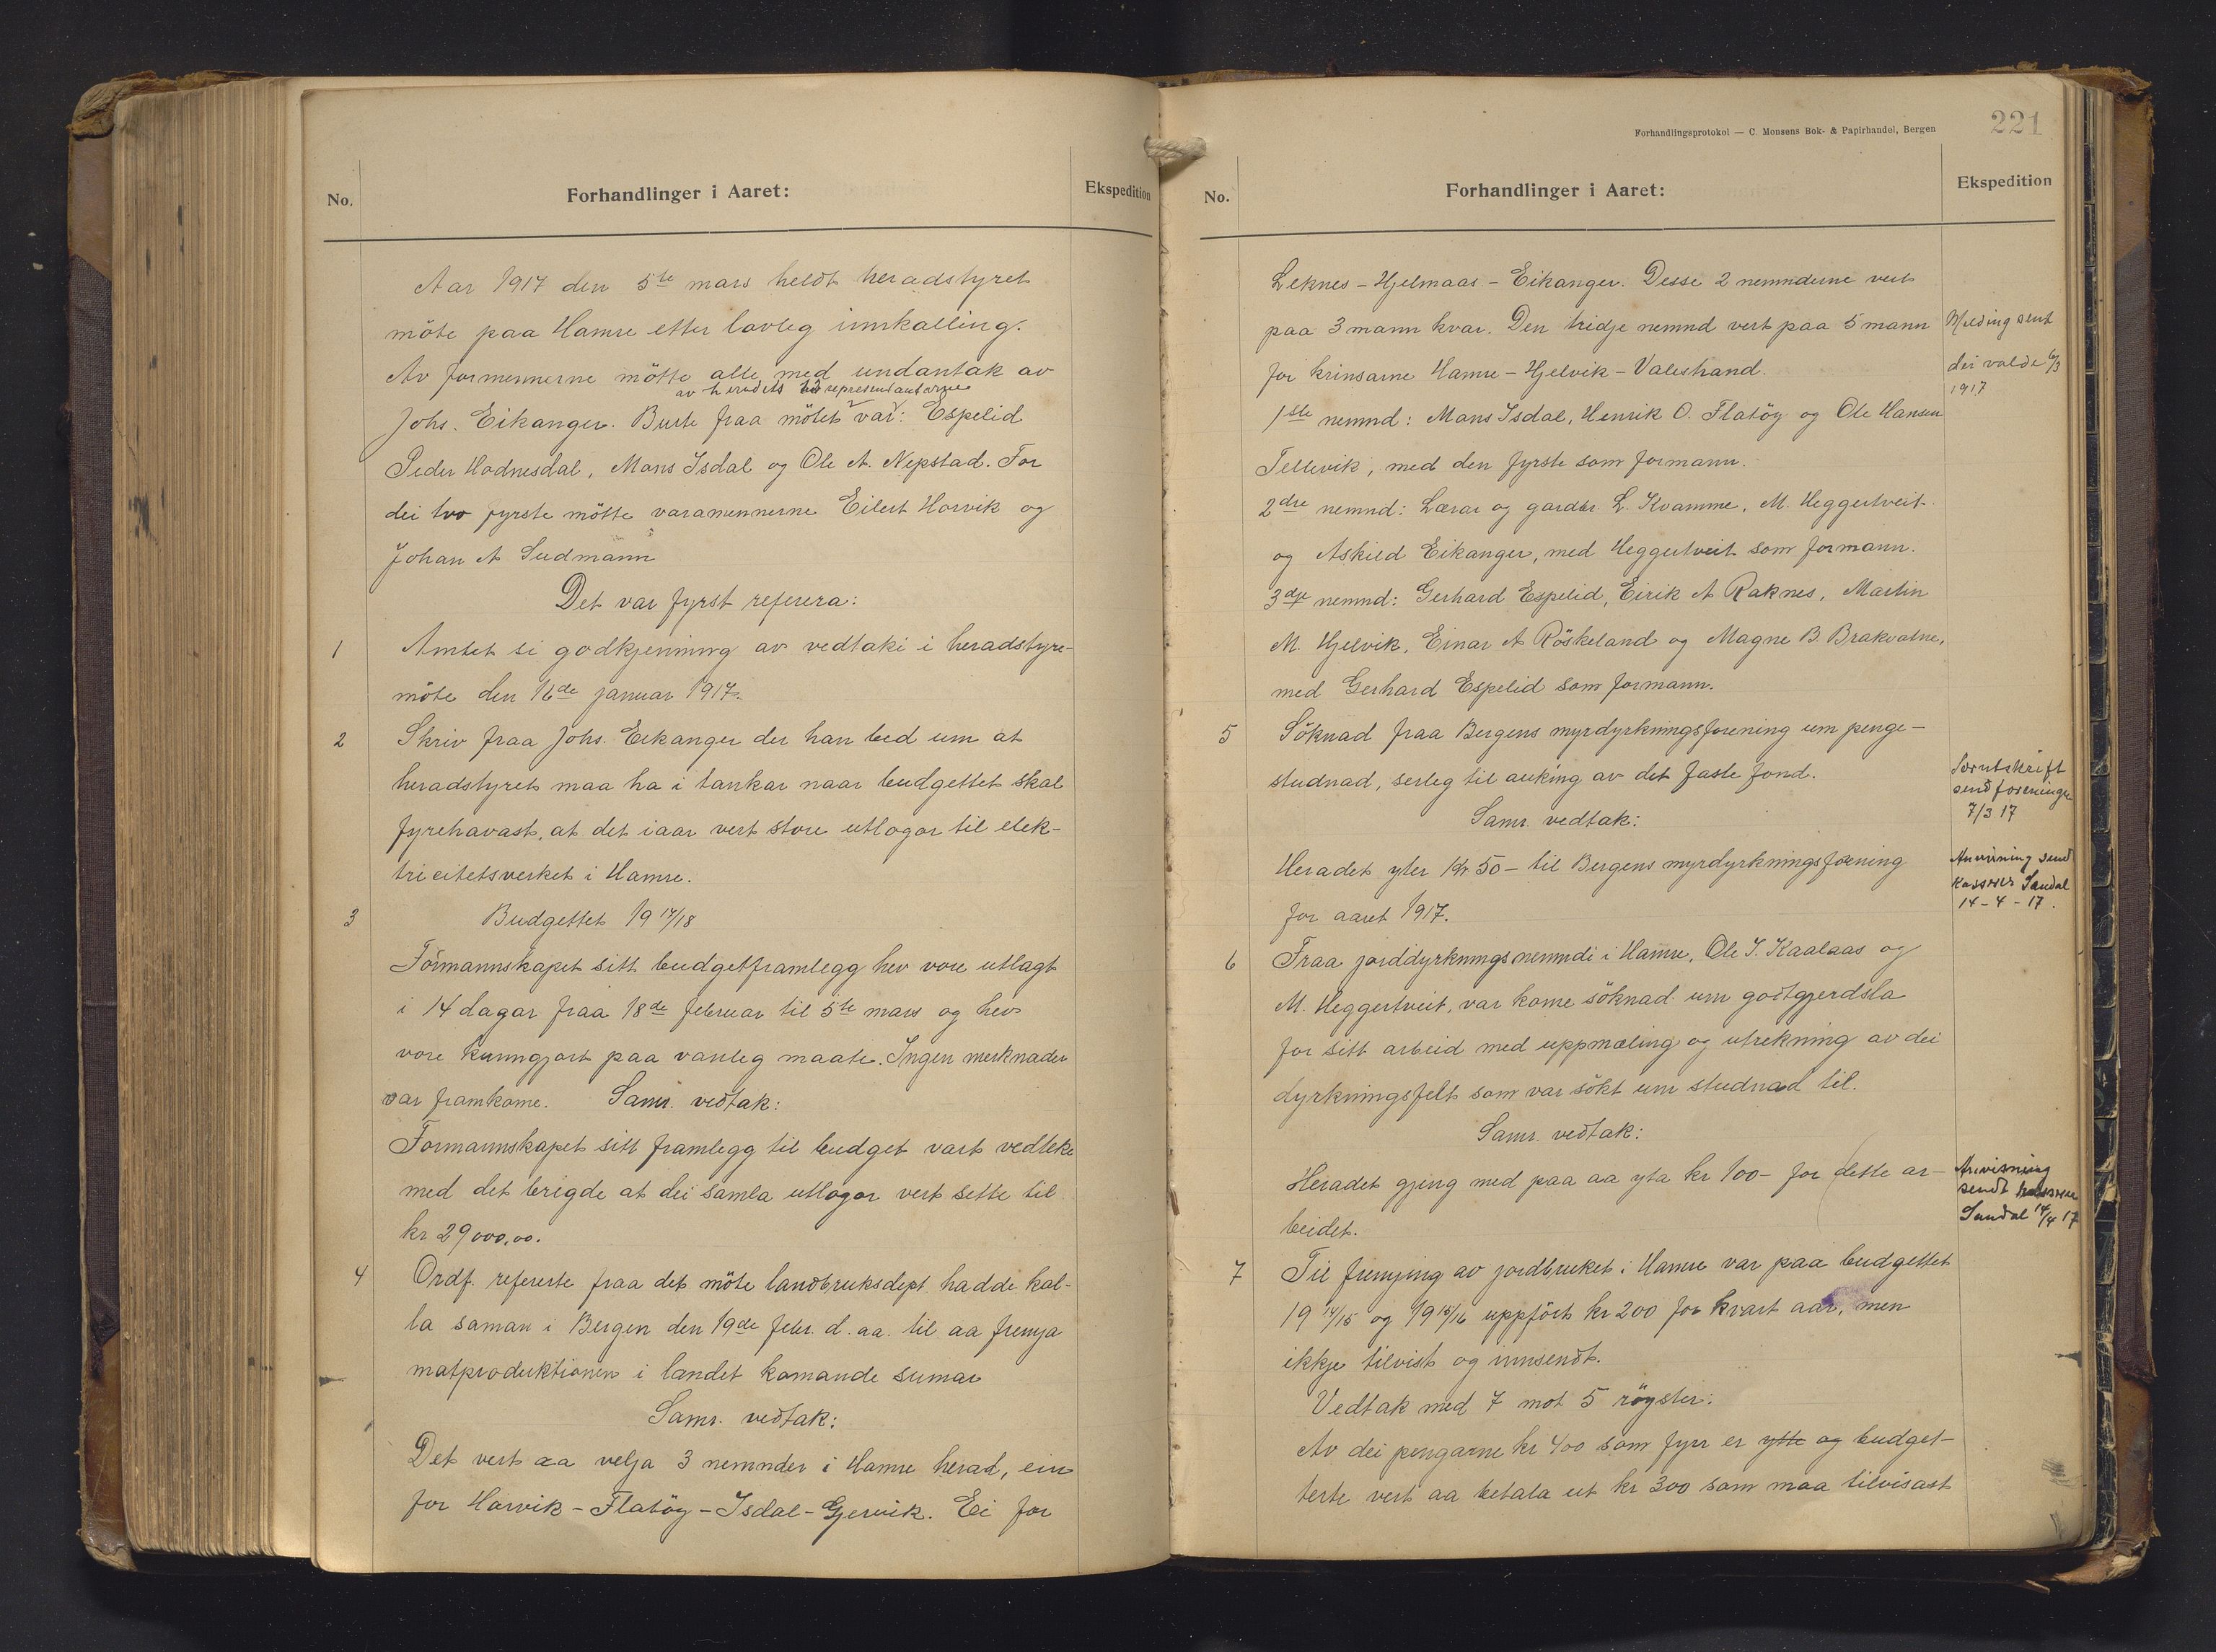 No.
Forhandlinger i Aaret:
Ekspedition
Aar 1917 den 5te mars heldt heradstyret
möte paa Hamre etter lovleg innkalling.
Av formennerne mötte alle med undantak av
av heradets representantarne
Johs. Eikanger. Burte fraa mötet var: Espelid
Peder Hodnesdal, Mons Isdal og Ole A. Nepstad. For
dei tvo fyrste mötte varamennerne Eilert Horvik og
Johan A Sudmann
Det var fyrst referera:
1 Amtet si godkjenning av vedtaki i heradstyre-
möte den 16de januar 1917.
2 Skriv fraa Johs. Eikanger der han bed um at
heradstyret maa ha i tankar naar budgettet skal
fyrehavast, at det iaar vert store utlogor til elek-
tricitetsverket i Hamre.
3 Budgettet 19 17/18
Formannskapet sitt budgetframlegg hev vore utlagt
i 14 dagar fraa 18de februar til 5te mars og hev
vore kunngjort paa vanleg maate. Ingen merknader
var framkome. Samr. vedtak:
Formannskapet sitt framlegg til budget vart vedteke
med det brigde at dei samla utlogor vert sette til
kr 29000,00.
4 Ordf. refererte fraa det möte landbruksdept. hadde kal-
la saman i Bergen den 19de febr. d. aa. til aa fremja
matproduktionen i landet komande sumar
Samr. vedtak:
Det vert aa velja 3 nemnder i Hamre herad, ein
for Horvik - Flatöy - Isdal - Gjervik. Ei for
Forhandlingsprotokol — C. Monsens Bok- & Papirhandel, Bergen
221
No.
Forhandlinger i Aaret:
Ekspedition
Leknes - Hjelmaas - Eikanger. Desse 2 nemnderne vert
paa 3 mann kvar. Den tridje nemnd vert paa 5 mann
for krinsarne Hamre - Hjelvik - Valestrand.
Melding sent
dei valde 6/3
1917
1ste nemnd: Mons Isdal, Henrik O. Flatöy og Ole Hansen
Tellevik, med den fyrste som formann.
2dre nemnd: Lærar og gardbr. L. Kvamme, M. Heggertveit
og Askild Eikanger, med Heggertveit som formann.
3dje nemnd: Gerhard Espelid, Eirik A Raknes, Martin
M. Hjelvik, Einar A Röskeland og Magne B. Brakvatne,
med Gerhard Espelid som formann.
5 Söknad fraa Bergens myrdyrkningsforening um penge-
studnad, serleg til auking av det faste fond.
Samr. vedtak:
Særutskrift
send foreningen
7/3 17
Heradet yter Kr 50 - til Bergens myrdyrkningsforening
for aaret 1917.
Anvisning send
kasserer Sandal
14-4-17.
6 Fraa jorddyrkningsnemndi i Hamre, Ole J. Kaalaas og
M. Heggertveit, var kome söknad um godtgjerdsla
for sitt arbeid med uppmæling og utrekning av dei
dyrkningsfelt som var sökt um studnad til.
Samr. vedtak:
Heradet gjeng med paa aa yta kr 100 - for dette ar-
beidet.
Anvisning
sendt kasserer
Sandal 14/4 17
7 Til fremjing av jordbruket i Hamre var paa budgettet
19 14/15 og 19 15/16 uppfört kr 200 for kvart aar, men
ikkje tilvist og innsendt.
Vedtak med 7 mot 5 röyster:
Av dei pengarne kr 400 som fyrr er ytte og budget-
terte vert aa betala ut kr 300 som maa tilvisast